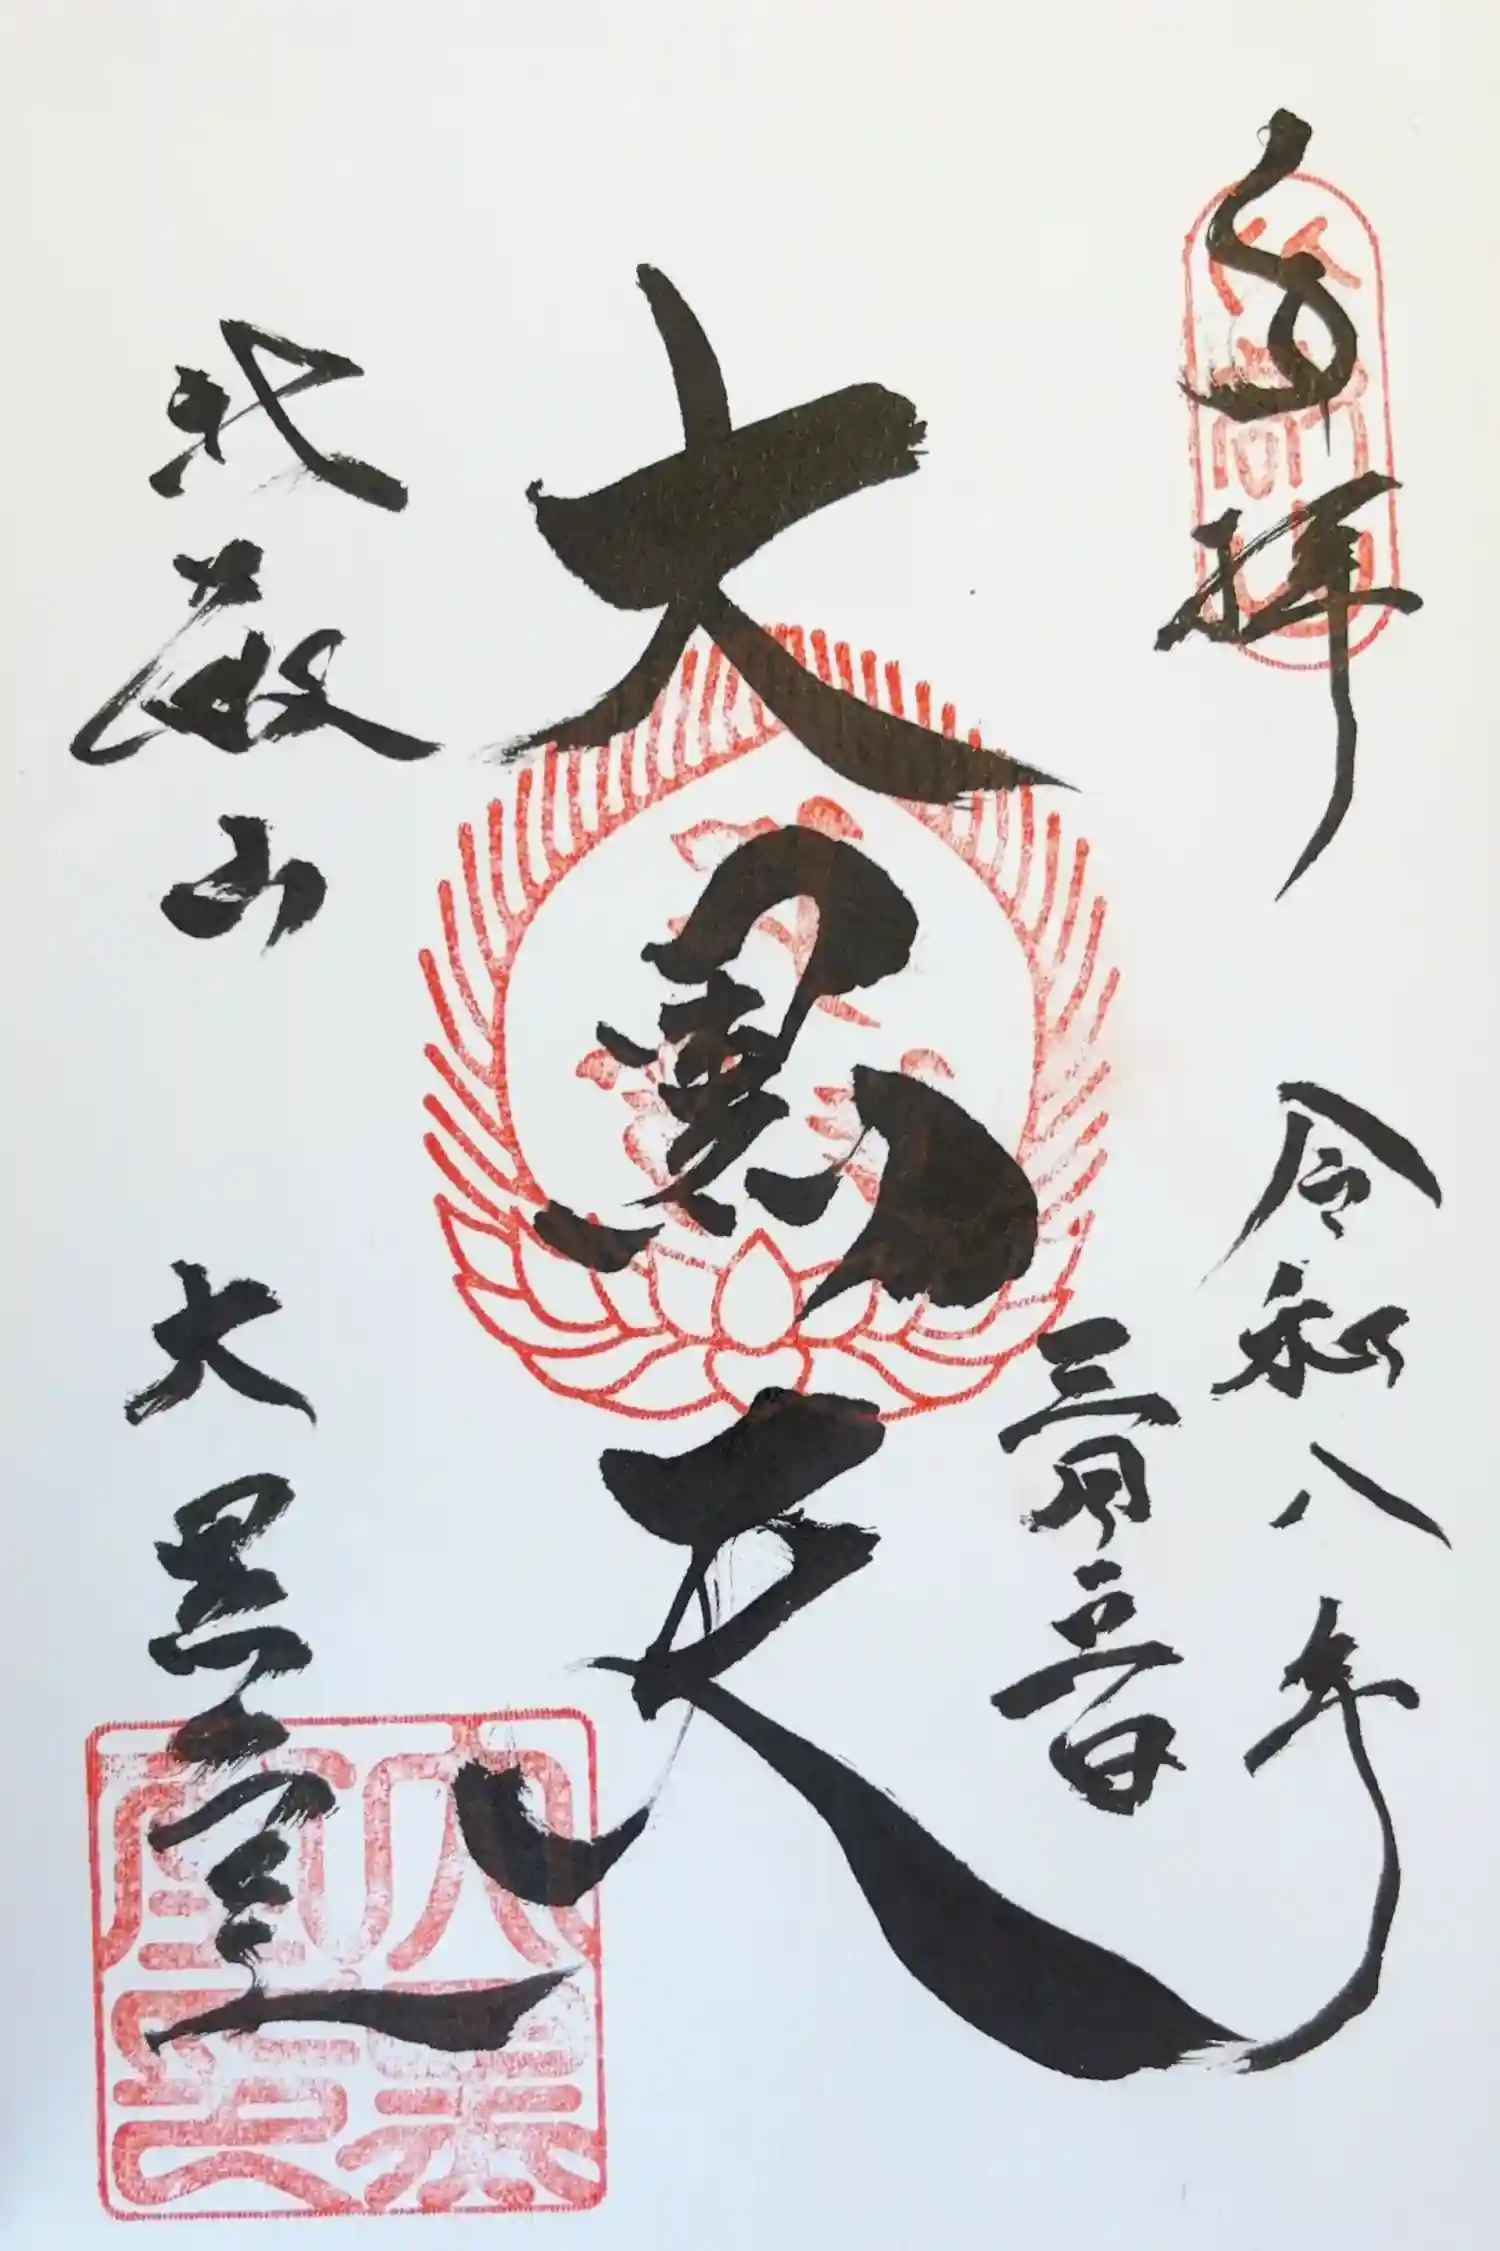 奉拝
令和八年
三月
日
大黒天
比叡山
大黒堂